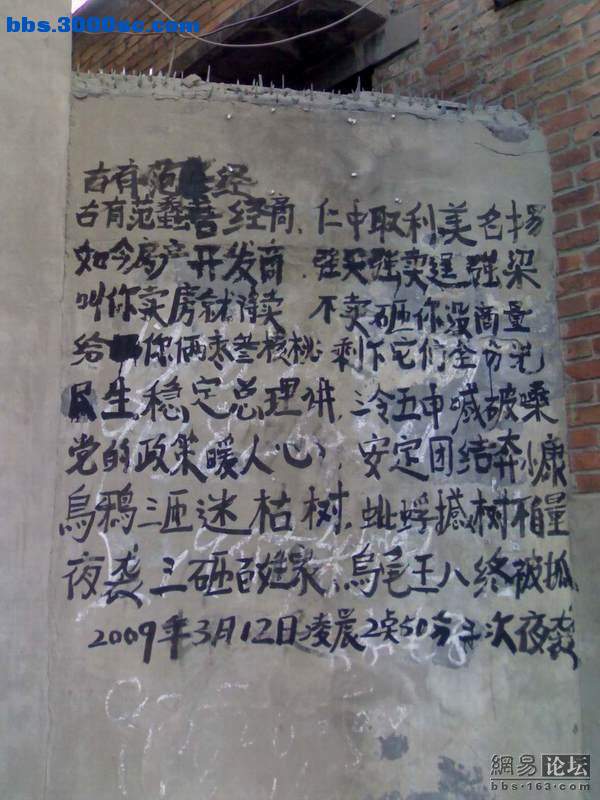 bbs.3000sc.com
古有范 经
古有范蠡善经商，仁中取利美名扬
如今房产开发商 强买强卖逞强梁
叫你卖房就得卖 不卖砸你没商量
给 你俩枣叁核桃 剩下它们全分光
民生稳定总理讲，三令五申喊破嗓
党的政策暖人心，安定团结奔小康
乌鸦三匝迷枯树，蚍蜉撼树不自量
夜袭三砸百姓家，乌龟王八终被抓
2009年3月12日凌晨2点50分 次夜袭
網易论坛
bbs.163.com